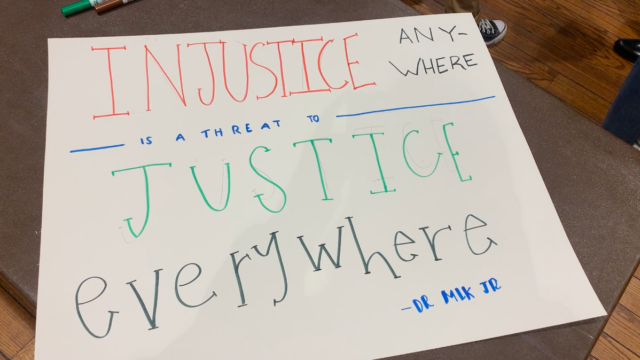 INJUSTICE ANY-
WHERE
IS A THREAT TO
JUSTICE
everywhere
-DR MLK JR